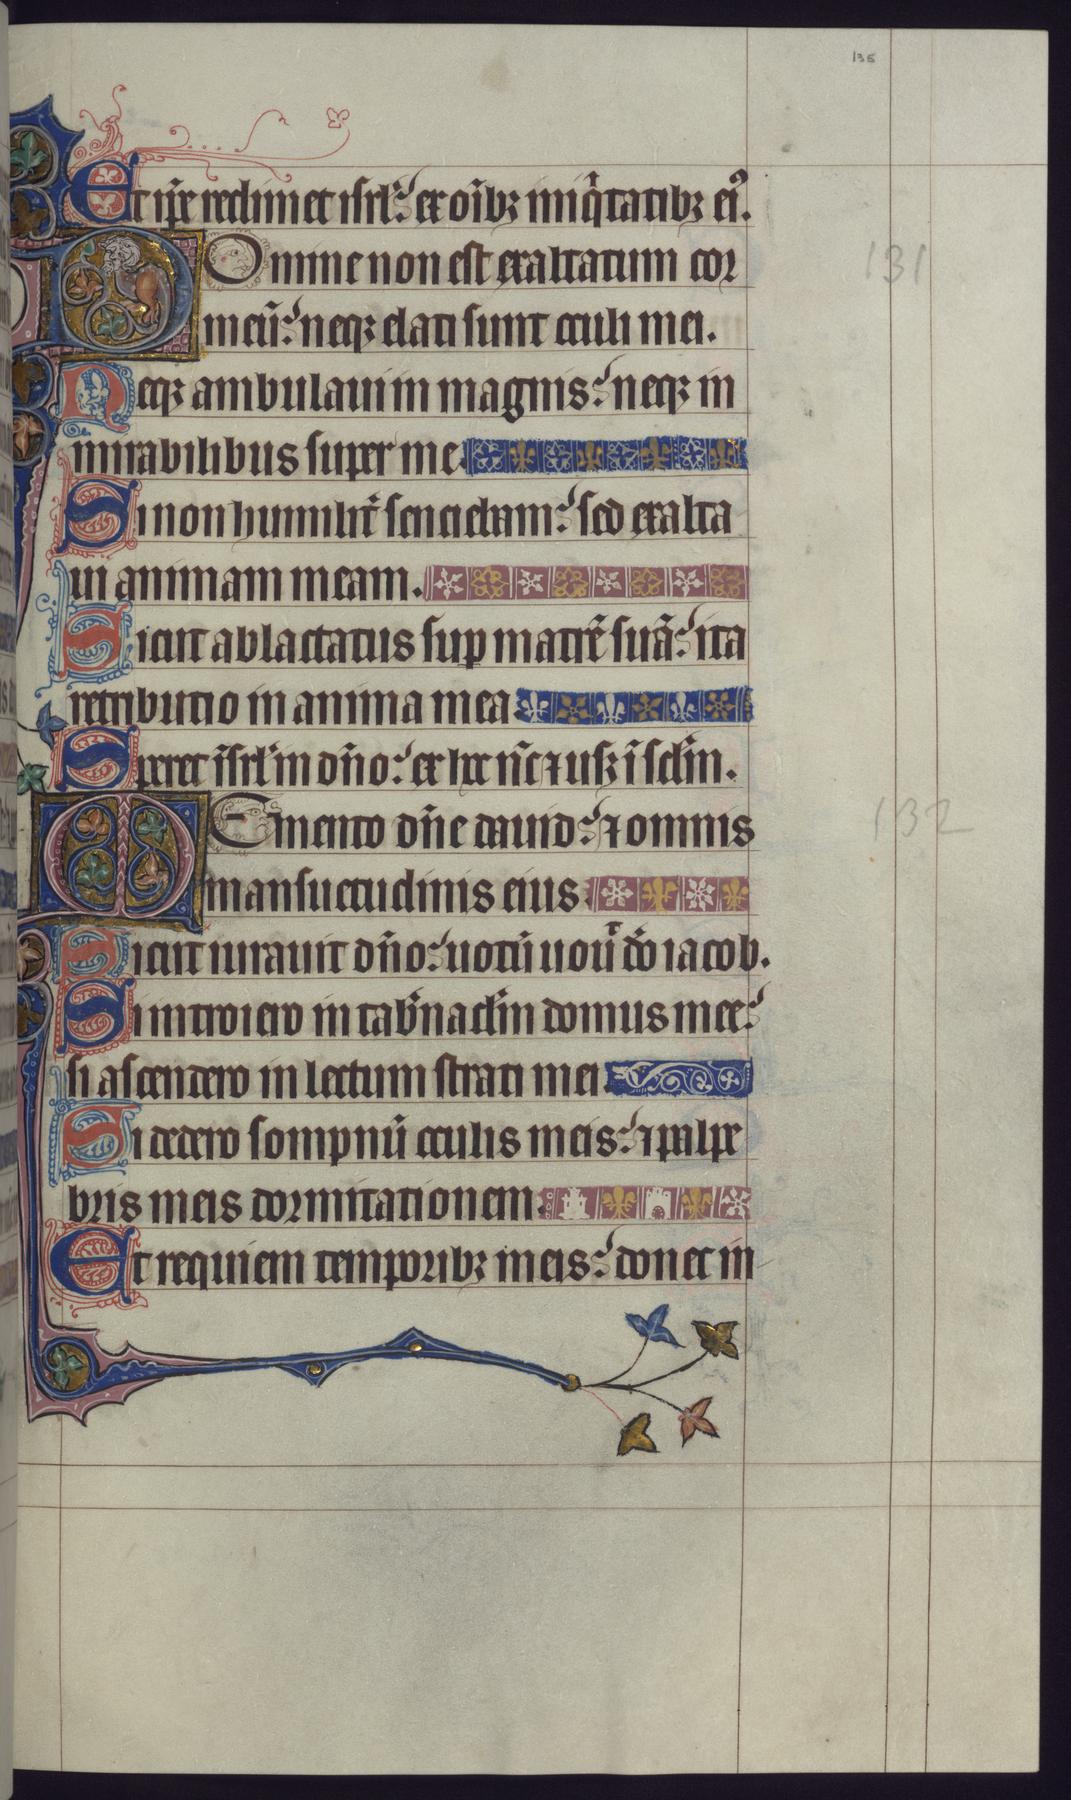 135
Et ip̃e redimet isrl̃: ex oĩbꝫ iniqͥtatibꝫ eiꝰ.
Domine non est exaltatum cor
131
meũ: neqꝫ elati sunt oculi mei.
Neqꝫ ambulaui in magnis: neqꝫ in
mirabilibus super me.
Si non humilit̃ senciebam: sed exalta
ui animam meam.
Sicut ablactatus sup matrẽ suã: ita
retributio in anima mea.
Speret isrl̃ in dño: ex hoc nc̃ ⁊ usqꝫ ĩ sclm̃.
Memento dñe dauid: ⁊ omnis
132
mansuetudinis eius.
Sicut iurauit dño: uotũ uouͥ dõ iacob.
Si introiero in tab̃naclm̃ domus mee:
si ascendero in lectum strati mei
Si dedero sompnũ oculis meis: ⁊ palpe
bris meis dormitationem.
Et requiem temporibꝫ meis: donec in